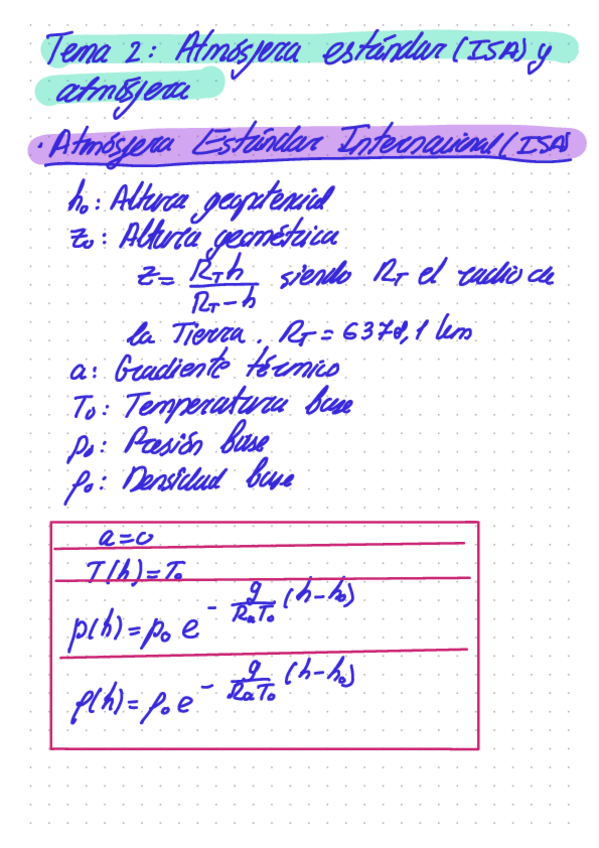 Tema 2: Atmósfera estándar (ISA) y
atmósfera
· Atmósfera Estándar Internacional (ISA
h₀: Altura geopotencial
z₀: Altura geométrica
z = R_T h / (R_T - h) siendo R_T el radio de
la Tierra. R_T = 6378,1 km
a: Gradiente térmico
T₀: Temperatura base
p₀: Presión base
ρ₀: Densidad base
a=0
T(h)=T₀
p(h)=p₀ e^(- g/(RₐT₀) (h-h₀))
ρ(h)=ρ₀ e^(- g/(RₐT₀) (h-h₀))